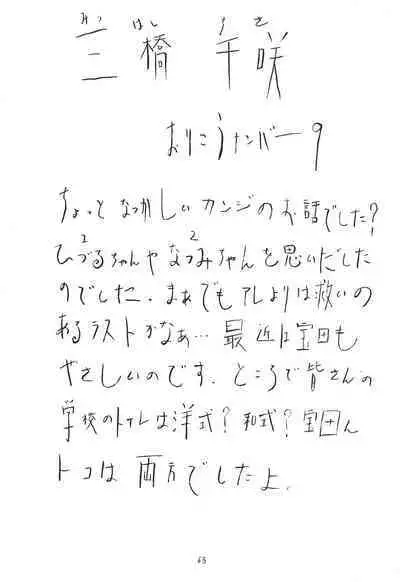 みつ はし ち さ
三橋 千咲
おりこうナンバー9
ちょっと なつかしいカンジのお話でした?
ひづるちゃんやなつみちゃんを思いだした
2 2
のでした. まぁでもアレよりは救いの
あるラストかなぁ… 最近は宝田も
やさしいのです. ところで皆さんの
学校のトイレは洋式? 和式? 宝田ん
トコは 両方でしたよ.
65